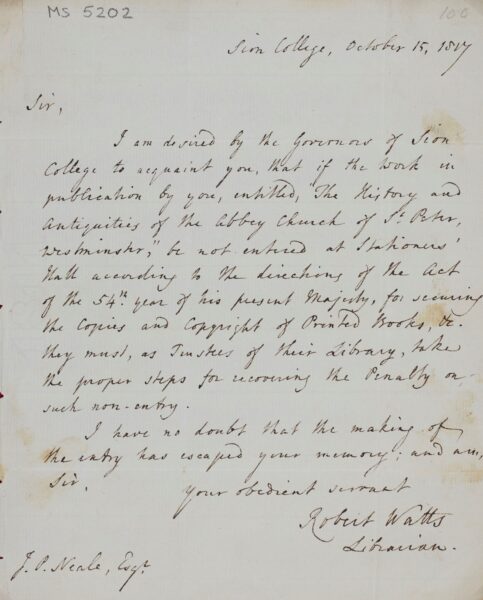 MS 5202
100
Sion College, October 15, 1817
Sir,
I am desired by the Governors of Sion
College to acquaint you, that if the work in
publication by you, entitled, "The History and
Antiquities of the Abbey Church of St. Peter,
Westminster," be not entered at Stationers'
Hall according to the directions of the Act
of the 54th year of his present Majesty, for securing
the Copies and Copyright of Printed Books, &c.
they must, as Trustees of their Library, take
the proper steps for recovering the Penalty on
such non-entry.
I have no doubt that the making of
the entry has escaped your memory; and am,
Sir,
your obedient servant
Robert Watts
Librarian.
J. P. Neale, Esqr.